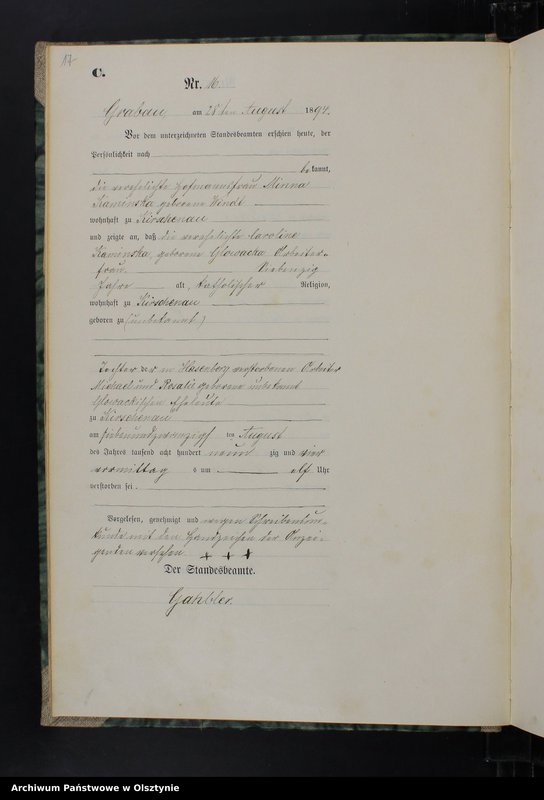 17
C.
Nr. 16.
Grabau, am 28ten August 1894.
Vor dem unterzeichneten Standesbeamten erschien heute, der
Persönlichkeit nach
bekannt,
die verehelichte Hofmannsfrau Minna
Kaminska geborene Windt
wohnhaft zu Kirschenau
und zeigte an, daß die verehelichte Caroline
Kaminska, geborene Glowacka Arbeiter-
frau, Siebenzig
Jahre alt, katholischer Religion,
wohnhaft zu Kirschenau
geboren zu (unbekannt)
Tochter der in Hasenberg verstorbenen Arbeiter
Michael und Rosalie geborene unbekannt
Glowackischen Eheleute
zu Kirschenau
am siebenundzwanzigsten August
des Jahres tausend acht hundert neunzig und vier
vormittags um elf Uhr
verstorben sei.
Vorgelesen, genehmigt und wegen Schreibensun-
kunde mit den Handzeichen der Anzei-
genden versehen
+ + +
Der Standesbeamte.
Gahbler.
Archiwum Państwowe w Olsztynie